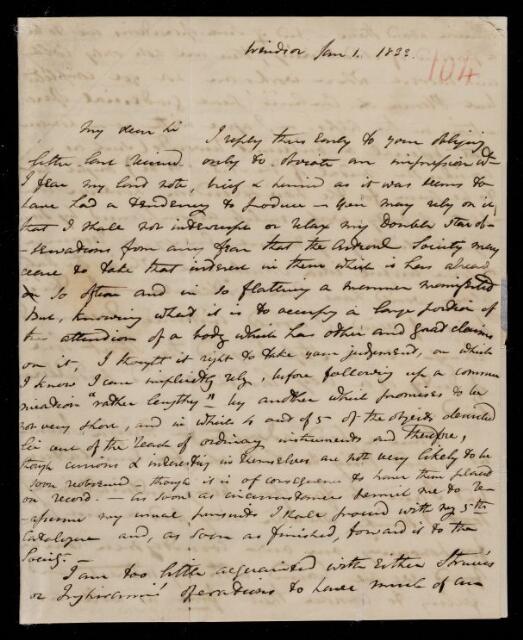 Windsor Jan 1. 1833.
104
My dear Sir I reply thus early to your obliging
letter last received only to obviate an impression wh
I fear my last note, brief & hurried as it was seems to
have had a tendency to produce - You may rely on it
that I shall not interrupt or relax my Double Star ob-
-servations from any fear that the Astronl Society may
cease to take that interest in them which it has alread
so often and in so flattering a manner manifested
But, knowing what it is to occupy a large portion of
the attention of a body which has other and great claims
on it, I thought it right to take your judgement, on which
I know I can implicitly rely, before following up a commu
nication "rather lengthy" by another which promises to be
not very short, and in which 4 out of 5 of the objects described
lie out of the reach of ordinary instruments and therefore,
though curious & interesting in themselves are not very likely to be
soon reobserved - though it is of consequence to have them placed
on record. - as soon as circumstances permit me to re-
-assume my usual pursuits I shall proceed with my 5th
Catalogue and, as soon as finished, forward it to the
Society. -
I am too little acquainted with Either Struve's
or Inghirami's operations to have much of an